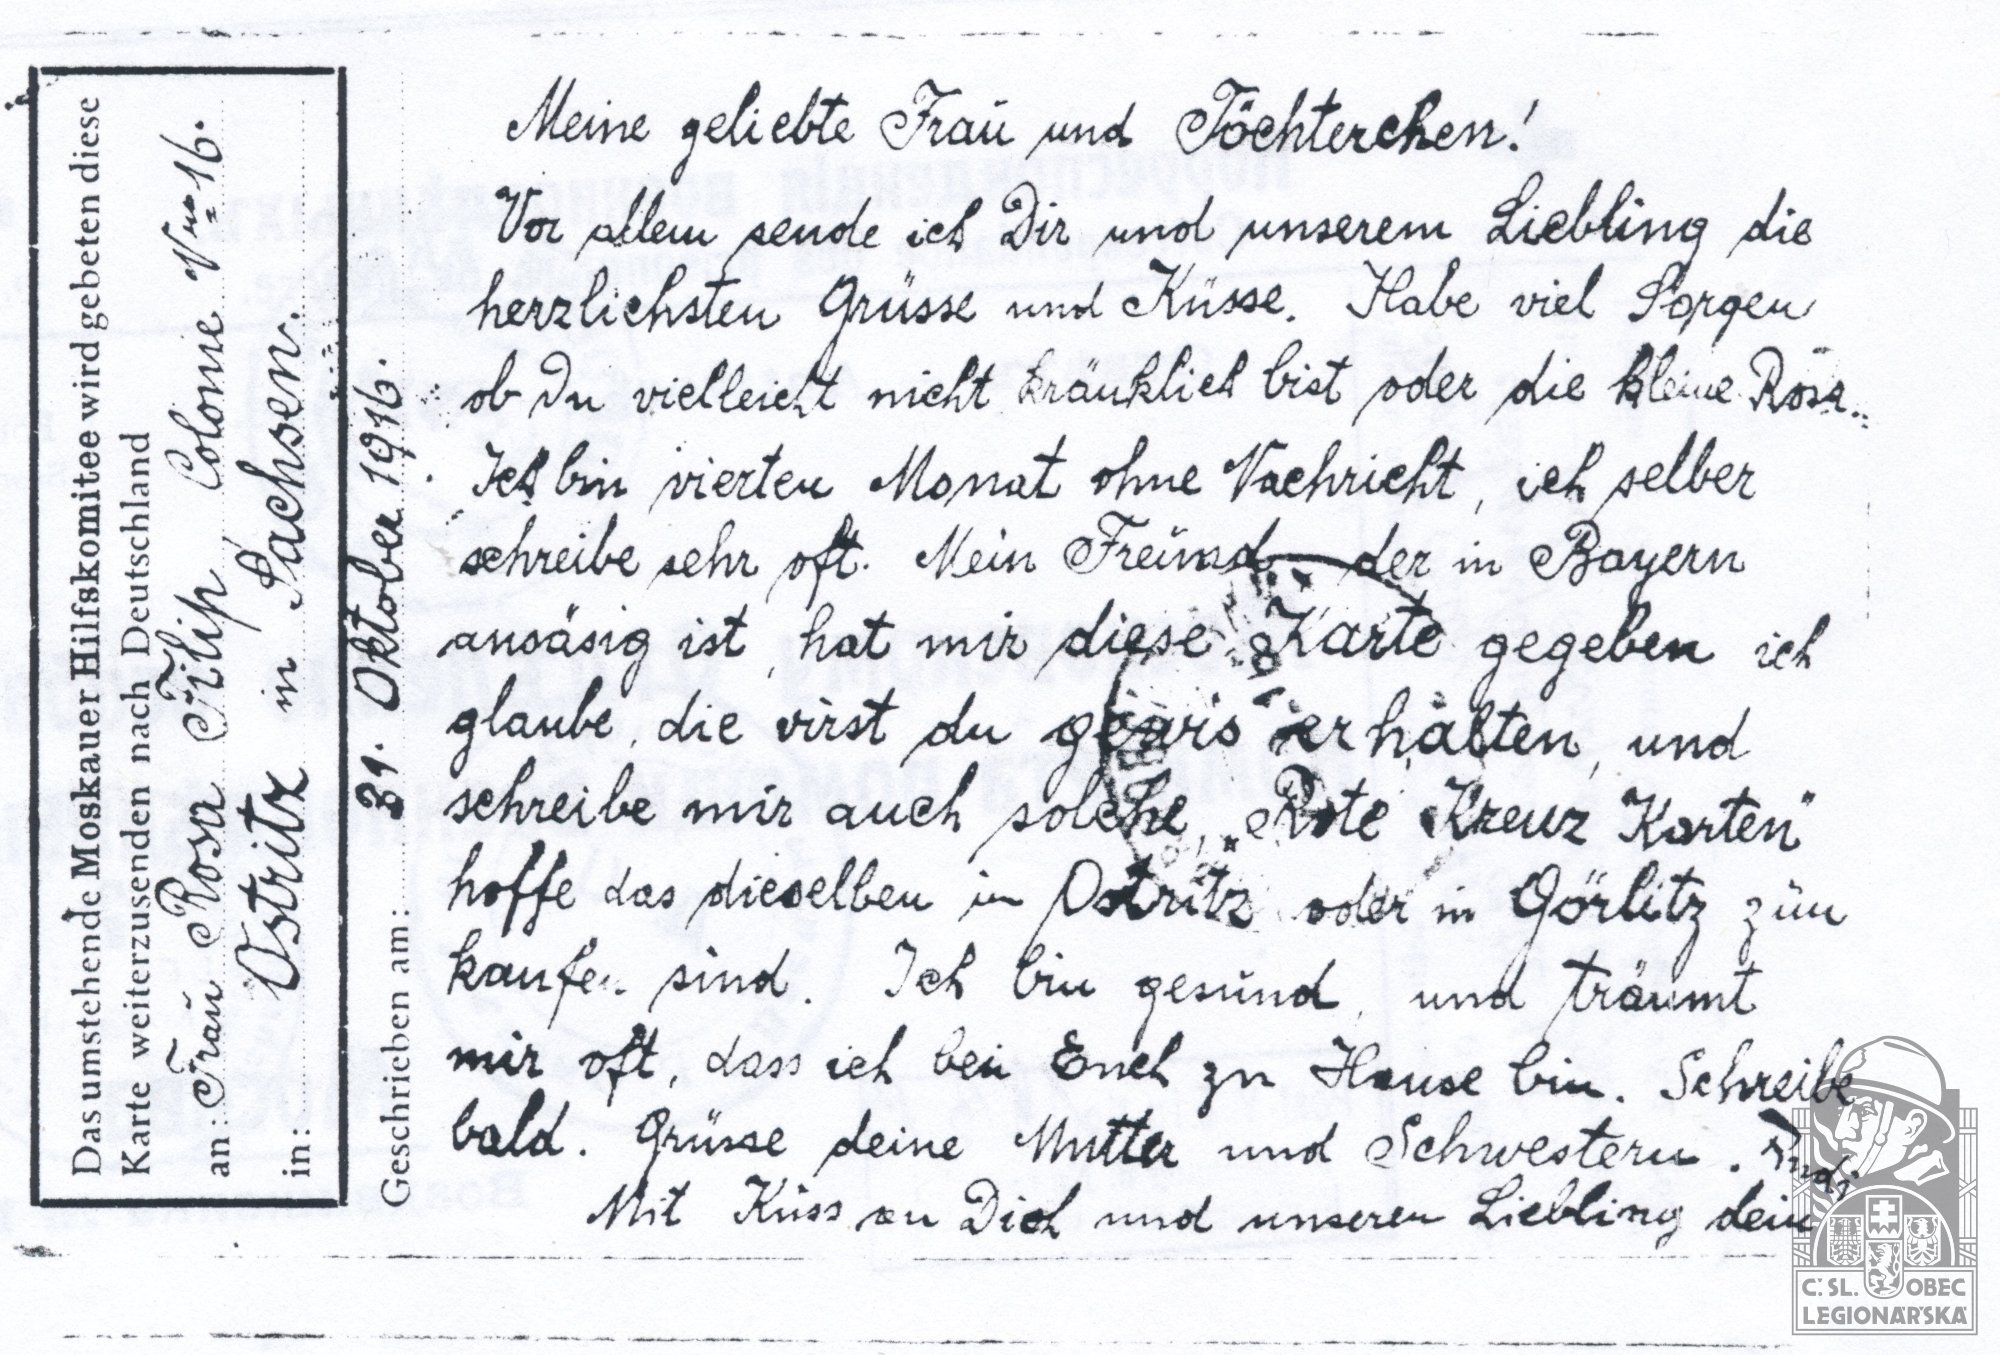 Das umstehende Moskauer Hilfskomitee wird gebeten diese
Karte weiterzusenden nach Deutschland
an: Fraŭ Rosa Filip, Colonie Nro 16.
in: Ostritz in Sachsen.
Geschrieben am: 31. Oktober 1916.
Meine geliebte Fraŭ und Töchterchen!
Vor allem sende ich Dir und unserem Liebling die
herzlichsten Grüsse und Küsse. Habe viel Sorgen
ob Du vielleicht nicht kränklich bist oder die kleine Rosa..
Ich bin vierten Monat ohne Nachricht, ich selber
schreibe sehr oft. Mein Freŭnd, der in Bayern
ansäsig ist, hat mir diese Karte gegeben ich
glaube, die virst du gewis erhalten, und
schreibe mir auch solche „Rote Kreuz Karten"
hoffe das dieselben in Ostritz oder in Görlitz zŭm
kaufen sind. Ich bin gesŭnd, und träumt
mir oft, dass ich bei Euch zu Hause bin. Schreibe
bald. Grüsse deine Mutter und Schwestern.
Mit Kŭss an Dich und unseren Liebling dein
Rudi
Č.SL. OBEC
LEGIONÁŘSKÁ